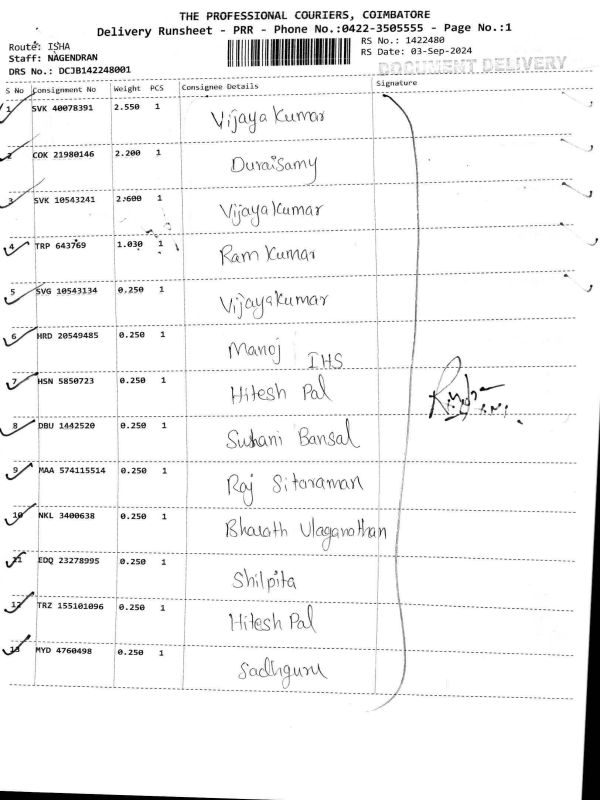 THE PROFESSIONAL COURIERS, COIMBATORE
Delivery Runsheet - PRR - Phone No.:0422-3505555 - Page No.:1
Route: ISHA
RS No.: 1422480
Staff: NAGENDRAN
RS Date: 03-Sep-2024
DRS No.: DCJB142248001
DOCUMENT DELIVERY
S No Consignment No Weight PCS Consignee Details Signature
1 SVK 40078391 2.550 1 Vijaya Kumar
2 COK 21980146 2.200 1 Duraisamy
3 SVK 10543241 2.600 1 Vijaya Kumar
4 TRP 643769 1.030 1 Ram Kumar
5 SVG 10543134 0.250 1 Vijaya Kumar
6 HRD 20549485 0.250 1 Manoj IHS
7 HSN 5850723 0.250 1 Hitesh Pal
8 DBU 1442520 0.250 1 Suhani Bansal
9 MAA 574115514 0.250 1 Raj Sitaraman
10 NKL 3400638 0.250 1 Bharath Ulaganathan
11 EDQ 23278995 0.250 1 Shilpita
12 TRZ 155101096 0.250 1 Hitesh Pal
13 MYD 4760498 0.250 1 Sadhguru